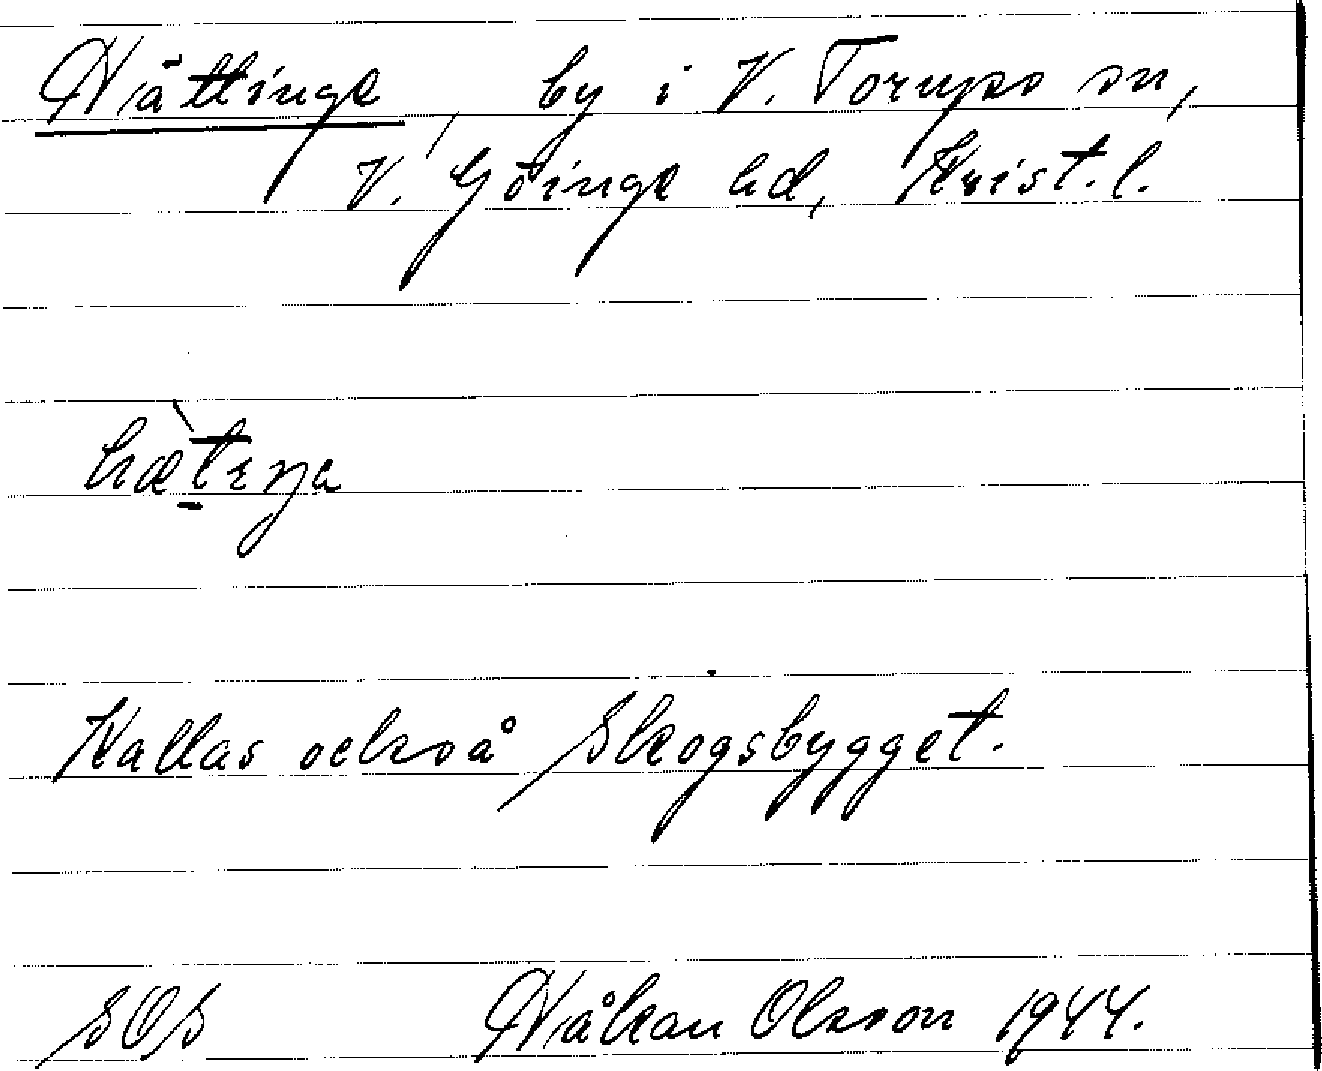 Hättinge, by i V. Torups sn,
V. Göinge hd, Krist. l.
Kallas också Skogsbygget.
SOS Håkan Olsson 1944.